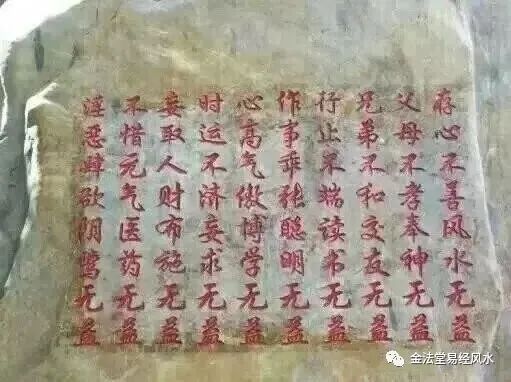 存心不善风水无益
父母不孝奉神无益
兄弟不和交友无益
行止不端读书无益
作事乖张聪明无益
心高气傲博学无益
时运不济妄求无益
妄取人财布施无益
不惜元气医药无益
淫恶肆欲阴骘无益
金法堂易经风水